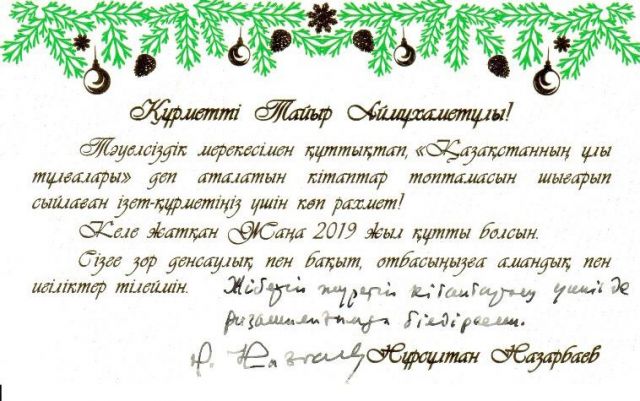 Құрметті Тайыр Аймұхаметұлы!
Тәуелсіздік мерекесімен құттықтап, «Қазақстанның ұлы
тұлғалары» деп аталатын кітаптар топтамасын шығарып
сыйлаған ізет-құрметіңіз үшін көп рахмет!
Келе жатқан Жаңа 2019 жыл құтты болсын.
Сізге зор денсаулық пен бақыт, отбасыңызға амандық пен
игіліктер тілеймін. Жіберіп жүрген кітаптарың үшін де
білдіремін.
Нұрсұлтан Назарбаев